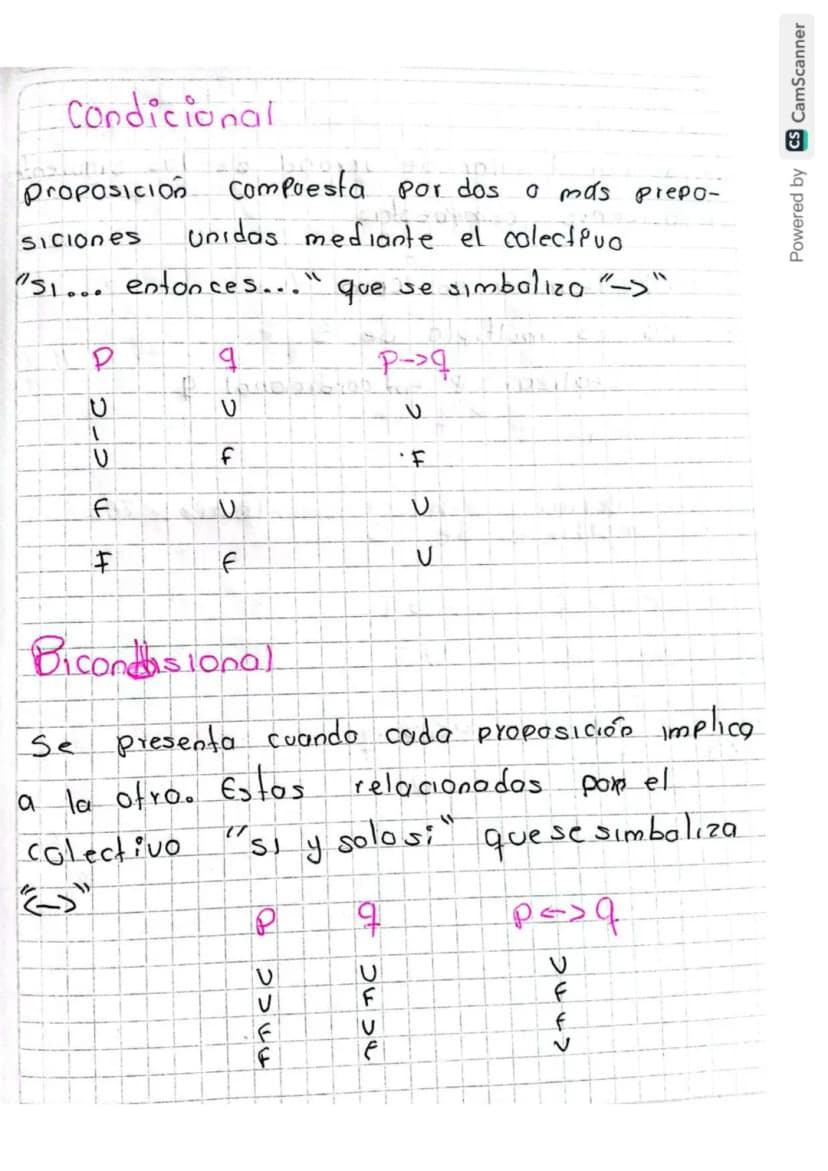 Condicional
proposición compuesta por dos o más prepo-
siciones unidas mediante el colectivo
"si... entonces..." que se simboliza "->"
p q p->q
V V V
V f F
f V V
F f V
Bicondisional
Se presenta cuando cada proposición implica
a la otra. Estas relacionadas por el
colectivo "si y solo si" que se simboliza
"<->"
p q p<->q
V V V
V F f
f V f
f f V
Powered by CS CamScanner